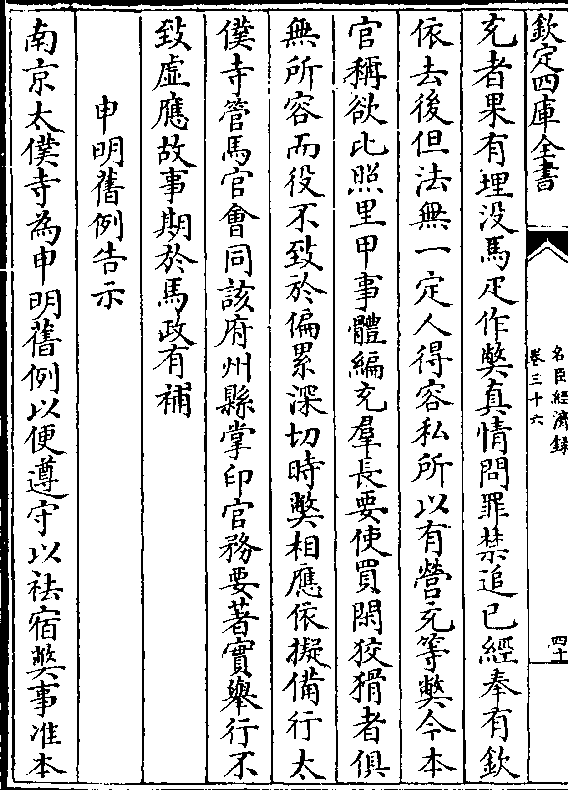 欽定四庫全書
名臣經濟録
卷三十六
四十
充者果有埋没馬疋作弊真情問罪禁追已經奉有欽
依去後但法無一定人得容私所以有營充等弊今本
官稱欲比照里甲事體編充羣長要使買閑狡猾者俱
無所容而役不致於偏累深切時弊相應依擬備行太
僕寺管馬官會同該府州縣掌印官務要著實舉行不
致虛應故事期於馬政有補
申明舊例告示
南京太僕寺為申明舊例以便遵守以袪宿弊事准本